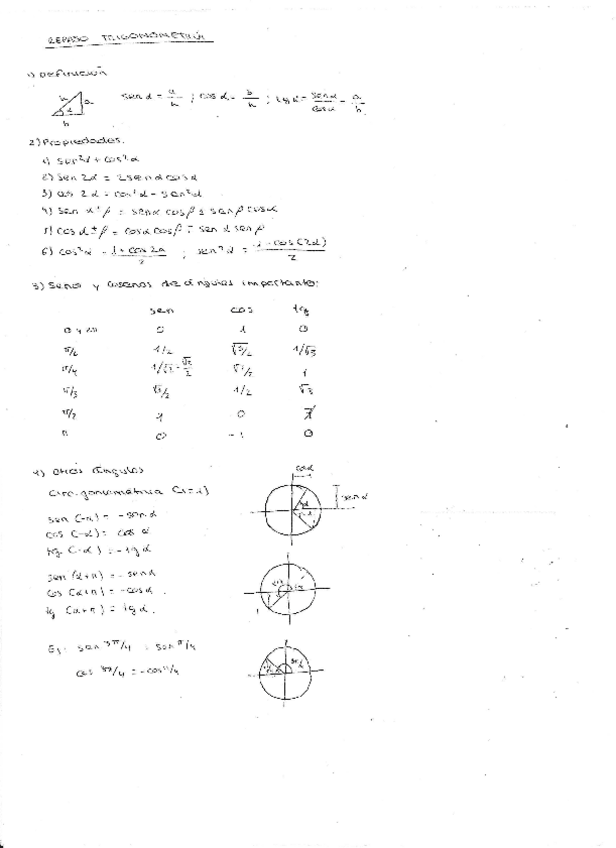 REPASO TRIGONOMETRÍA
1) Definición
h a
α
b
sen α = a/h ; cos α = b/h ; tg α = sen α/cos α = a/b
2) Propiedades.
1) sen²α + cos²α
2) sen 2α = 2 sen α cos α
3) cos 2α = cos²α - sen²α
4) sen α ± β = sen α cos β ± sen β cos α
5) cos α ± β = cos α cos β ∓ sen α sen β
6) cos²α = 1 + cos 2α/2 ; sen²α = 1 - cos (2α)/2
3) Senos y cosenos de ángulos importantes:
sen cos tg
0 y 2π 0 1 0
1/2 √3/2 1/√3
π/4 1/√2 = √2/2 √2/2 1
π/3 √3/2 1/2 √3
π/2 1 0 ∄
π 0 -1 0
4) Otros ángulos
Circ. goniométrica
cos α
sen α
sen (-α) = -sen α
cos (-α) = cos α
tg (-α) = -tg α
sen (α+π) = -sen α
cos (α+π) = -cos α
tg (α+π) = tg α
Ej: sen 3π/4 = sen π/4
cos 3π/4 = -cos π/4